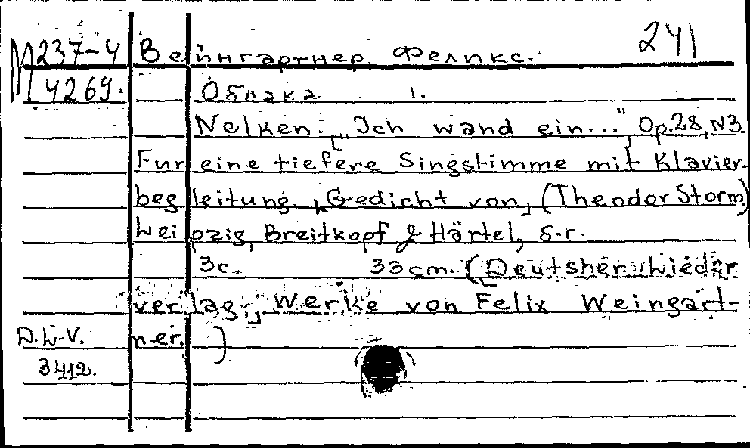 M 237-4 Вейнгартнер Феликс. 241
4269. Облака 1.
Nelken. „Ich wand ein..." Op.28, N3
Fur eine tiefere Singstimme mit Klavier-
begleitung. „Gedicht von„ (Theodor Storm)
Leipzig, Breitkopf & Härtel, s.r.
3c. 33cm. (Deutsher Lieder
verlag. „Werke von Felix Weingart-
D.L.V. ner. )
3412.